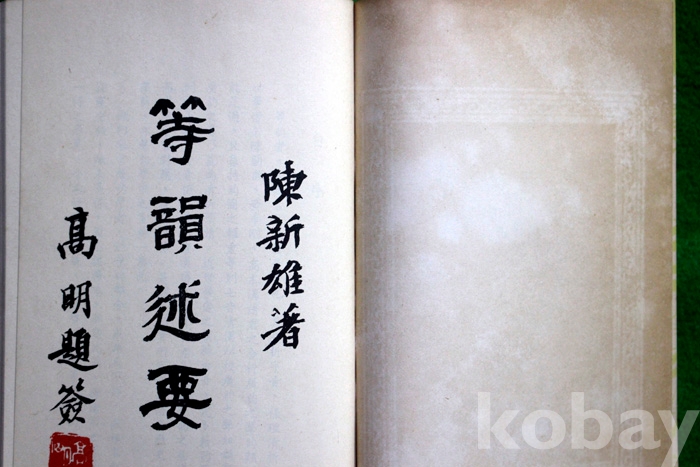 陳新雄著
等韻述要
高明題簽
kobay